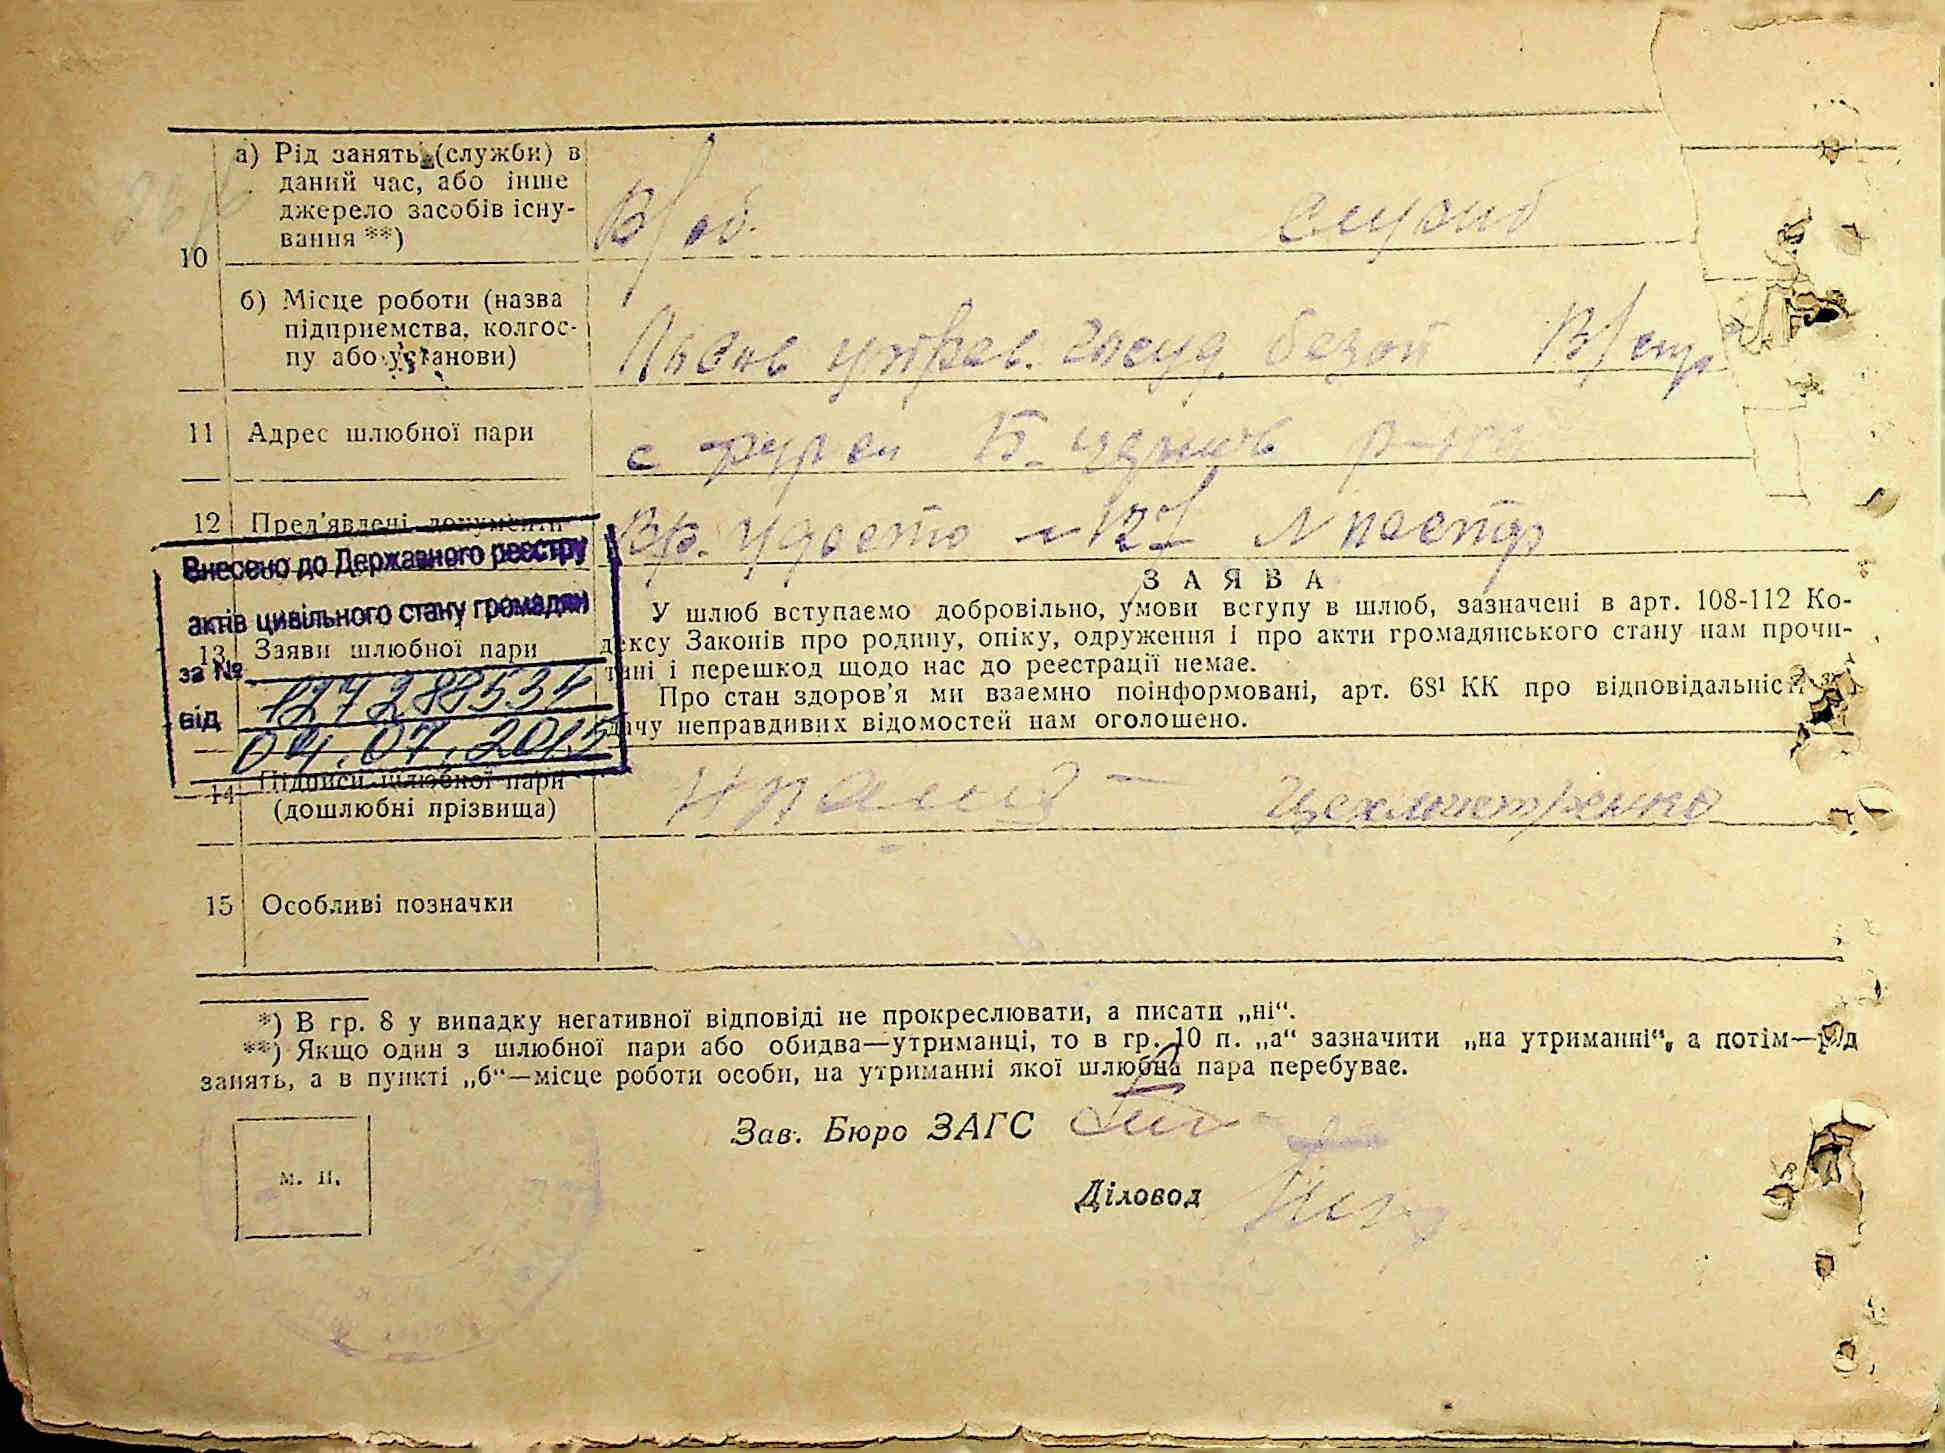 а) Рід занять (служби) в
даний час, або інше
джерело засобів існу-
вання **)
В/об. служб
10
б) Місце роботи (назва
підприємства, колгос-
пу або установи)
Львов управ. госуд. безоп В/стр
11 Адрес шлюбної пари
с р-на
12 Пред'явлені документи
Вр. удосто №
Внесено до Державного реєстру
актів цивільного стану громадян
за № 127288534
від 04.07.2015
З А Я В А
У шлюб вступаємо добровільно, умови вступу в шлюб, зазначені в арт. 108-112 Ко-
13 Заяви шлюбної пари
дексу Законів про родину, опіку, одруження і про акти громадянського стану нам прочи-
тані і перешкод щодо нас до реєстрації немає.
Про стан здоров'я ми взаємно поінформовані, арт. 68¹ КК про відповідальність
дачу неправдивих відомостей нам оголошено.
14 Підписи шлюбної пари
(дошлюбні прізвища)
15 Особливі позначки
*) В гр. 8 у випадку негативної відповіді не прокреслювати, а писати „ні“.
**) Якщо один з шлюбної пари або обидва—утриманці, то в гр. 10 п. „а“ зазначити „на утриманні“, а потім—рід
занять, а в пункті „б“—місце роботи особи, на утриманні якої шлюбна пара перебуває.
Зав. Бюро ЗАГС
м. п.
Діловод